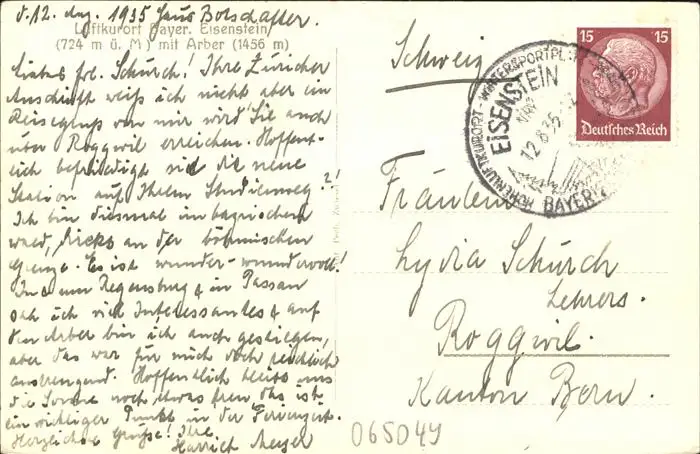 d. 12. Aug. 1935 Haus Botschafter.
Luftkurort Bayer. Eisenstein
(724 m ü. M) mit Arber (1456 m)
Liebes Frl. Schürch! Ihre Züricher
Anschrift weiß ich nicht aber ein
Reisegruß von mir wird Sie auch
über Roggwil erreichen. Hoffent-
lich befriedigt sie die neue
Station auf Ihrem Studienweg?!
Ich bin diesmal im bayrischen
Wald, direkt an der böhmischen
Grenze. Es ist wunder-wundervoll!
In Regensburg & in Passau
sah ich viel Interessantes & auf
den Arber bin ich auch gestiegen,
aber das war für mich doch reichlich
anstrengend. Hoffentlich bleibt uns
die Sonne noch etwas treu das ist
ein wichtiger Punkt in der Ferienzeit.
Herzliche Grüße! Ihre
Meyer
Schweiz
15 15
Deutsches Reich
HÖHENLUFTKURORT - WINTERSPORTPL
EISENSTEIN
12.8.35
BAYER
Fräulein
Lydia Schürch
Lehrers.
Roggwil.
Kanton Bern.
065049